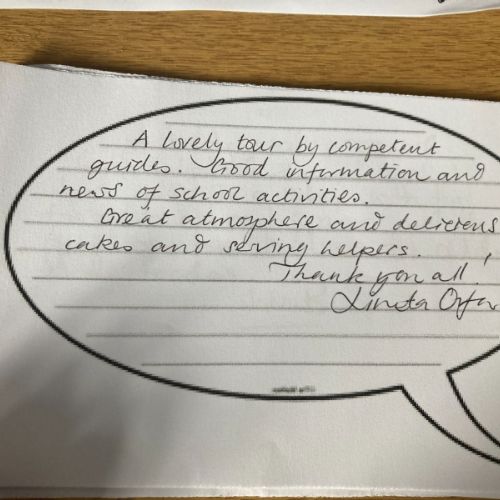 A lovely tour by competent
guides. Good information and
news of school activities.
Great atmosphere and delicious
cakes and serving helpers.
Thank you all!